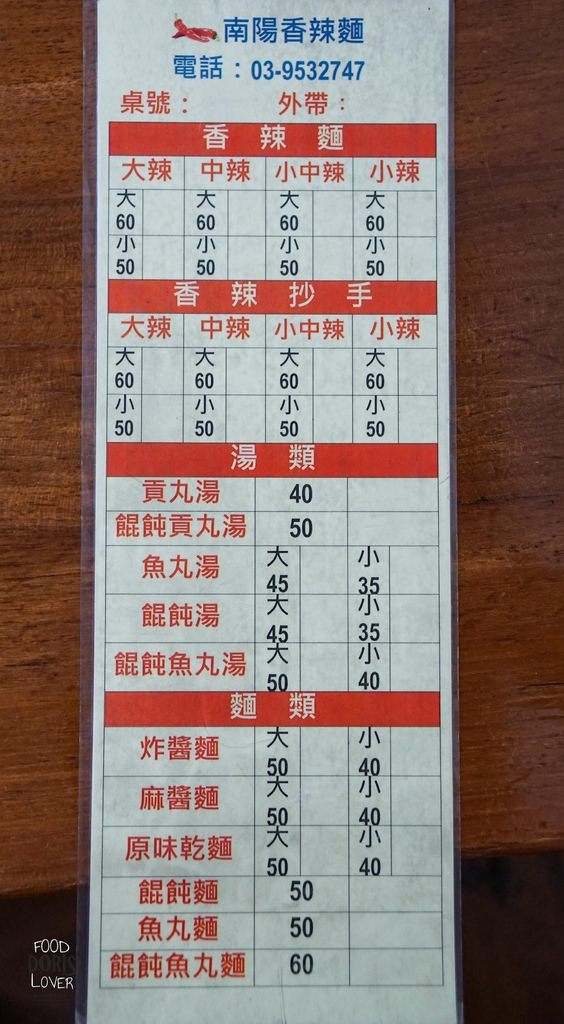 南陽香辣麵
電話：03-9532747
桌號： 外帶：
香辣麵
大辣 中辣 小中辣 小辣
大 60 大 60 大 60 大 60
小 50 小 50 小 50 小 50
香辣抄手
大辣 中辣 小中辣 小辣
大 60 大 60 大 60 大 60
小 50 小 50 小 50 小 50
湯類
貢丸湯 40
餛飩貢丸湯 50
魚丸湯 大 45 小 35
餛飩湯 大 45 小 35
餛飩魚丸湯 大 50 小 40
麵類
炸醬麵 大 50 小 40
麻醬麵 大 50 小 40
原味乾麵 大 50 小 40
餛飩麵 50
魚丸麵 50
餛飩魚丸麵 60
FOOD
DORIS
LOVER